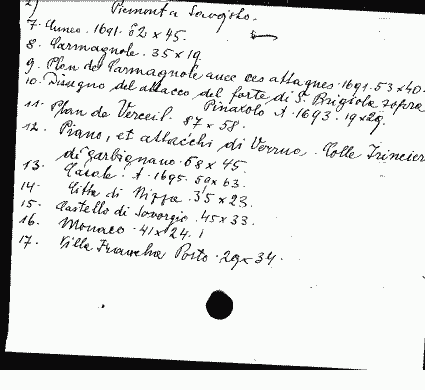 2)
Piemont a Savojsko.
7. Cuneo. 1691. 62 x 45.
8. Carmagnole. 35 x 19
9. Plan de Carmagnole avec ces attaques. 1691. 53 x 40.
10. Disegno del attacco del forte di S. Brigiola sopra
Pinarolo A 1693. 19 x 29.
11. Plan de Verceil. 87 x 58.
12. Piano, et attacchi di Verrua. Colle Trincier
di Garbignano. 68 x 45.
13. Casale. A. 1695. 59 x 63.
14. Citta di Nizza. 35 x 23.
15. Castello di Savorgio. 45 x 33.
16. Monaco. 41 x 24.
17. Villa Francha Porto. 29 x 34.